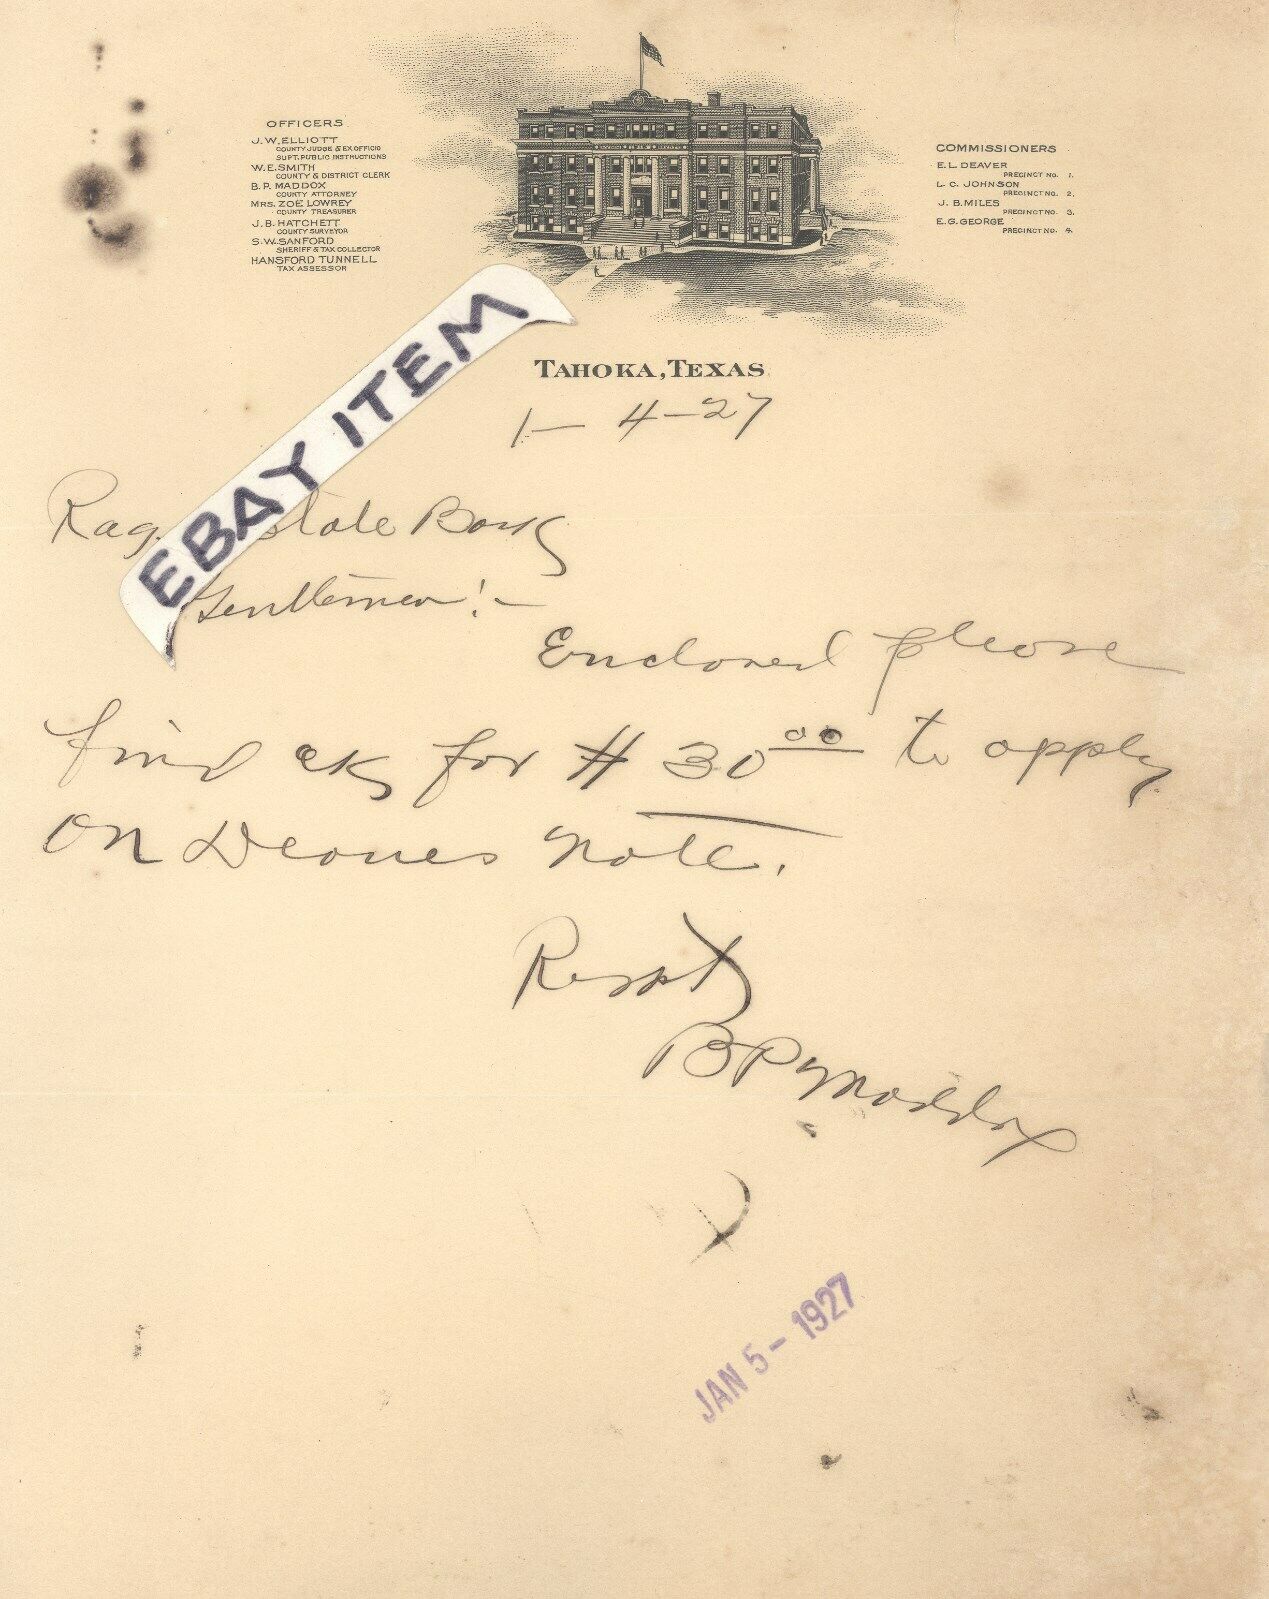 OFFICERS
J.W. ELLIOTT
COUNTY JUDGE & EX OFFICIO
SUPT. PUBLIC INSTRUCTIONS
W.E. SMITH
COUNTY & DISTRICT CLERK
B.P. MADDOX
COUNTY ATTORNEY
MRS. ZOE LOWREY
COUNTY TREASURER
J.B. HATCHETT
COUNTY SURVEYOR
S.W. SANFORD
SHERIFF & TAX COLLECTOR
HANSFORD TUNNELL
TAX ASSESSOR
COMMISSIONERS
E.L. DEAVER
PRECINCT NO. 1.
L.C. JOHNSON
PRECINCT NO. 2.
J.B. MILES
PRECINCT NO. 3.
E.G. GEORGE
PRECINCT NO. 4.
TAHOKA, TEXAS
1-4-27
EBAY ITEM
State Bank
Gentlemen:-
Enclosed please
find ck for # 30 00 to apply
on note.
Respt
BP Maddox
JAN 5-1927